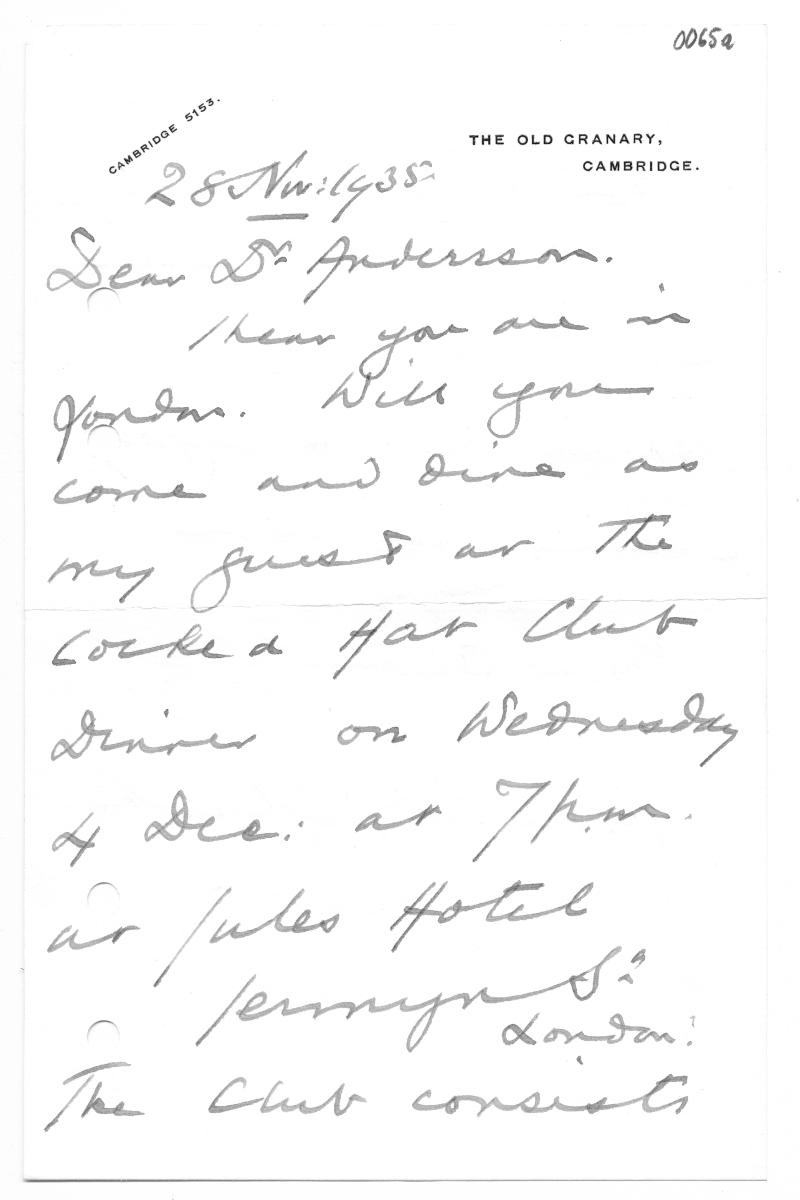 0065a
CAMBRIDGE 5153.
THE OLD GRANARY,
CAMBRIDGE.
28 Nov: 1935
Dear Dr Andersson.
I hear you are in
London. Will you
come and dine as
my guest at the
Cocked Hat Club
Dinner on Wednesday
4 Dec: at 7 p.m.
at Jules Hotel
Jermyn St
London.
The Club consists